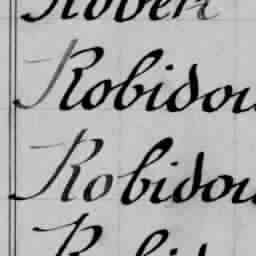 Robert
Robidou
Robidou
Robid